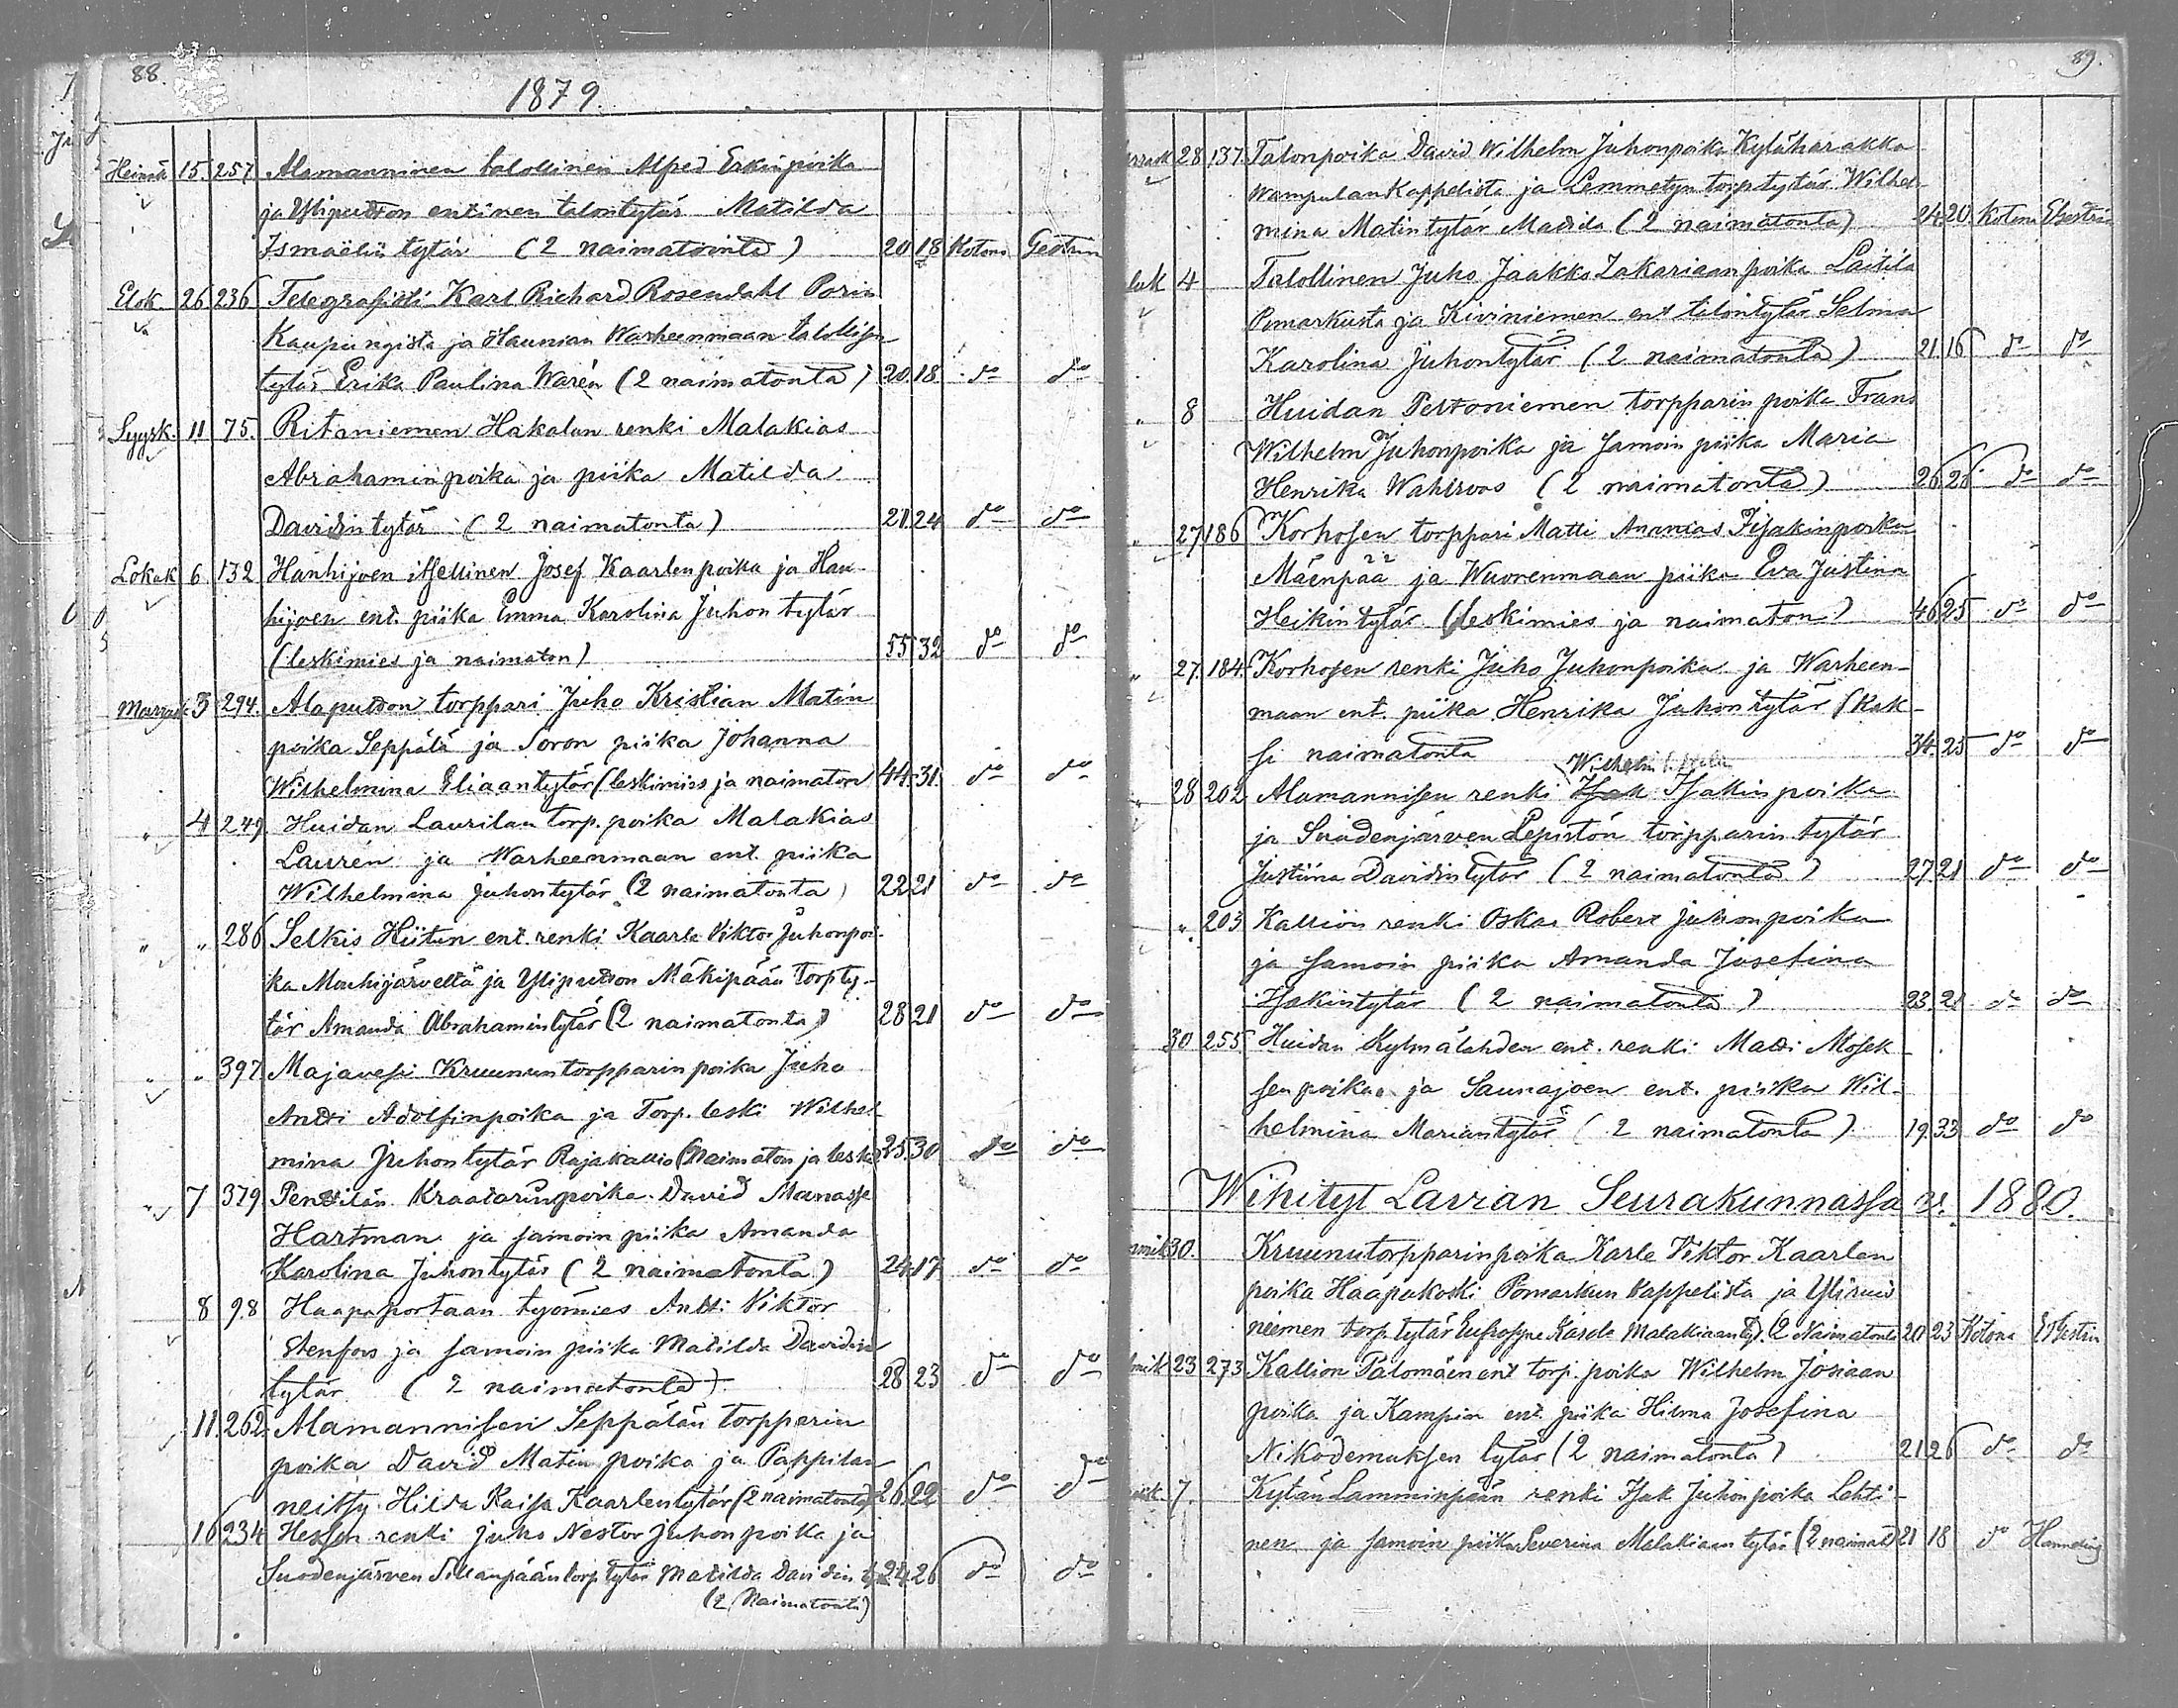 88.
1879.
Heinä 15. 257. Alamanninen talollinen Alfred Erkinpoika
ja Yliputton entinen talontytär Matilda
Ismaëlin tytär (2 naimatointa) 20 18 Kotona
Elok. 26. 236 Telegrafisti Karl Richard Rosendahl Porin
Kaupungista ja Haunian Warheenmaan talollisen
tytär Erika Paulina Warén (2 naimatonta) 20. 18. do do
Syysk. 11 75. Ritaniemen Hakalan renki Malakias
Abrahamin poika ja piika Matilda
Davidin tytär (2 naimatonta) 21 24 do do
Lokak 6. 132 Hanhijoen itsellinen Josef Kaarlen poika ja Han-
hijoen ent. piika Emma Karolina Juhon tytär
(leskimies ja naimaton) 55 32 do do
Marrask 3 294. Alaputton torppari Juho Kristian Matin
poika Seppälä ja Soron piika Johanna
Wilhelmina Eliaantytär (leskimies ja naimaton) 44. 31. do do
" 4 249. Huidan Laurilan torp. poika Malakias
Laurén ja Warheenmaan ent. piika
Wilhelmina Juhontytär (2 naimatonta) 22 21 do do
" " 286 Selkis Hiitun ent. renki Kaarle Viktor Juhonpoi-
ka Mouhijärveltä ja Yliputton Mäkipään torp ty-
tär Amanda Abrahamintytär (2 naimatonta) 28 21 do do
" " 397 Majavesi Kruununtorpparin poika Juho
Antti Adolfinpoika ja Torp. leski Wilhel-
mina Juhontytär Rajakallio (Naimaton ja leski) 25. 30 do do
" 7 379 Penttilän Kraatarinpoika David Manasse
Hartman ja samoin piika Amanda
Karolina Juhontytär (2 naimatonta) 24. 17 do do
8 98 Haapaportaan työmies Antti Viktor
Stenfors ja samoin piika Matilda Davidin
tytär (2 naimatonta) 28 23 do do
11. 262. Alamannisen Seppälän torpparin
poika David Matin poika ja Pappilan
neitsy Hilda Kaisa Kaarlentytär (2 naimatonta) 26 22 do do
16 234 renki Juho Nestor Juhon poika ja
Suodenjärven Sillanpään torp tytär Matilda Davidin 24 26 do do
(2 Naimatonta)
89.
28. 137. Talonpoika David Wilhelm Juhonpoika Kyläharakka
Wampulan Kappelista ja Lemmetyn torp tytär Wilhel-
mina Matintytär Matilda (2 naimatonta) 24. 20. Kotona
4 Talollinen Juho Jaakko Zakariaan poika Laitila
Pomarkusta ja Kiviniemen ent talontytär Selma
Karolina Juhontytär (2 naimatonta) 21 16 do do
" 8 Huidan Pettoniemen torpparin poika Frans
Wilhelm Juhonpoika ja samoin piika Maria
Henrika Wahlroos (2 naimatonta) 26 26 do do
" 27 186 Korhosen torppari Matti Ananias Iisakinpoika
Mäenpää ja Wuorenmaan piika Eva Justina
Heikin tytär (leskimies ja naimaton) 46 25 do do
" 27. 184. Korhosen renki Juho Juhonpoika ja Warheen-
maan ent. piika Henrika Juhon tytär (Kak-
si naimatonta 34. 25 do do
Wilhelm
28 202. Alamannisen renki Isak Isakin poika
ja Suodenjärven Lepistön torpparin tytär
Justiina Davidintytär (2 naimatonta) 27 21 do do
" 203 Kallion renki Oskar Robert Juhonpoika
ja samoin piika Amanda Josefina
Isakintytär (2 naimatonta) 23. 21 do do
30 255 Huidan Kylmälahden ent. renki Matti Mosek-
sen poika ja Saunajoen ent. piika Wil-
helmina Mariantytär (2 naimatonta) 19. 33 do do
Wihityt Lavian Seurakunnassa v. 1880.
30. Kruunutorpparinpoika Karle Viktor Kaarlen
poika Haapakoski Pomarkun kappelista ja
niemen torp. tytär Eufrosyne Karola Malakiaan ty. (2 Naimatonta 20 23 Kotona
23 273 Kallion Palomäen ent torp. poika Wilhelm Josiaan
poika ja Kampin ent. piika Hilma Josefina
Nikodemuksen tytär (2 naimatonta) 21 26 do do
7. Kylän Lamminpään renki Isak Juhon poika Lehti-
nen ja samoin piika Severina Malakiaan tytär (2 naimat) 21 18 do